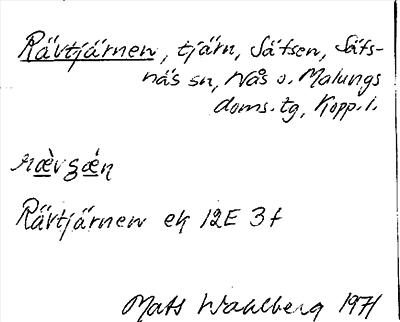 Rävtjärnen, tjärn, Sätsen, Säfs-
näs sn, Nås o. Malungs
doms. tg, Kopp. l.
ræ̀vʒæ̀n
Rävtjärnen ek 12E 3f
Mats Wahlberg 1971